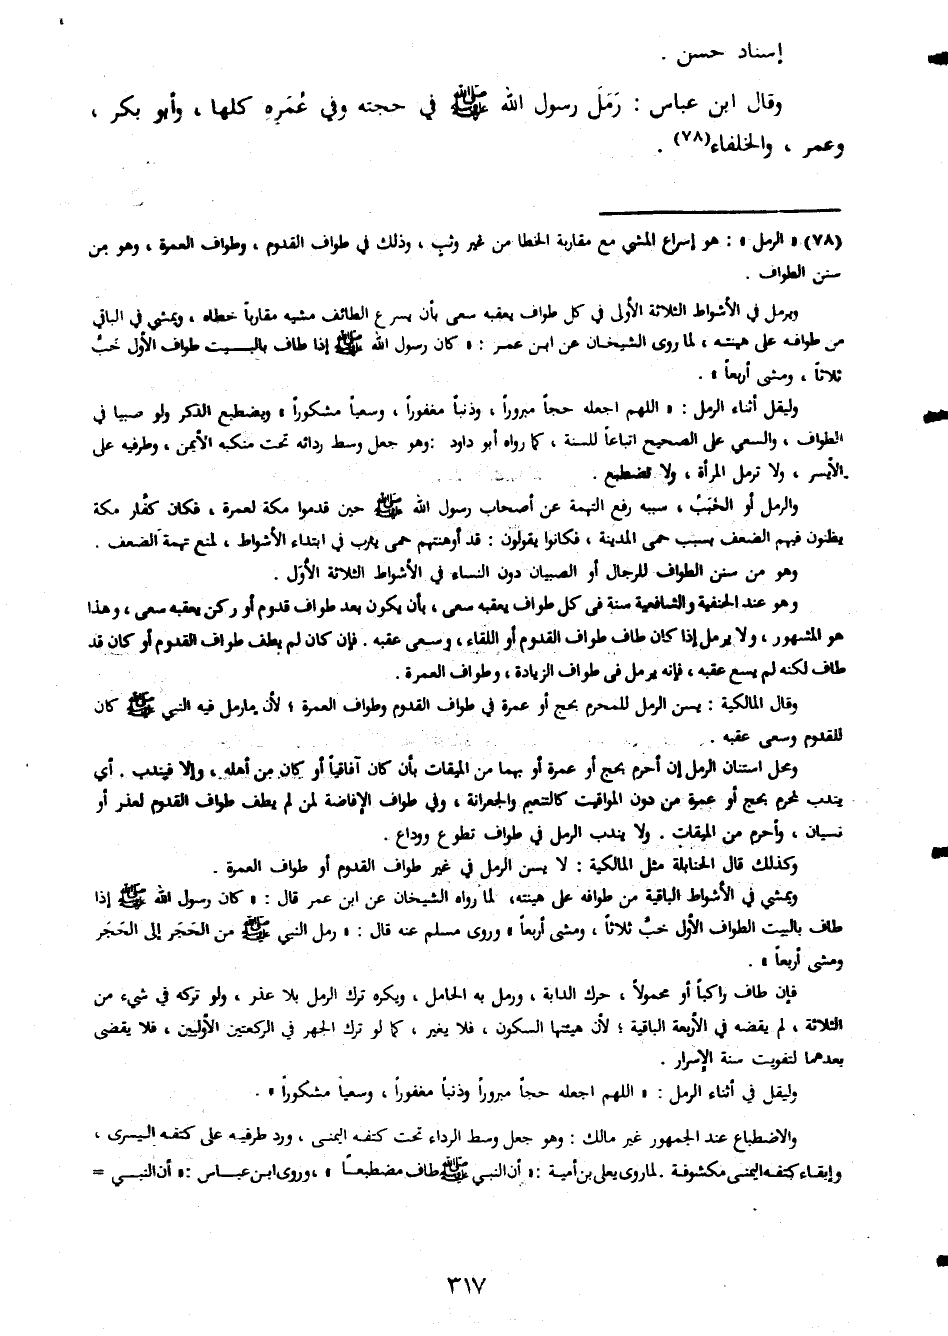 إسناد حسن .
وقال ابن عباس : رَمَلَ رسول الله ﷺ في حجته وفي عُمَرِهِ كلها ، وأبو بكر ،
وعمر ، والخلفاء(٧٨) .
(٧٨) « الرمل » : هو إسراع المشي مع مقاربة الخطا من غير وثبٍ ، وذلك في طواف القدوم ، وطواف العمرة ، وهو من
سنن الطواف .
ويرمل في الأشواط الثلاثة الأولى في كل طواف يعقبه سعى بأن يسرع الطائف مشيه مقارباً خطاه ، ويمشي في الباقي
من طوافه على هينته ، لما روى الشيخان عن ابن عمر : « كان رسول الله ﷺ إذا طاف بالبيت طواف الأول خَبَّ
ثلاثاً ، ومشى أربعاً » .
وليقل أثناء الرمل : « اللهم اجعله حجاً مبروراً ، وذنباً مغفوراً ، وسعياً مشكوراً » ويضطبع الذكر ولو صبيا في
الطواف ، والسعي على الصحيح اتباعاً للسنة ، كما رواه أبو داود :وهو جعل وسط ردائه تحت منكبه الأيمن ، وطرفيه على
الأيسر ، ولا ترمل المرأة ، ولا تضطبع .
والرمل أو الخَبَبُ ، سببه رفع التهمة عن أصحاب رسول الله ﷺ حين قدموا مكة لعمرة ، فكان كفَّار مكة
يظنون فيهم الضعف بسبب حمى المدينة ، فكانوا يقولون : قد أوهنتهم حمى يثرب في ابتداء الأشواط ، لمنع تهمة الضعف .
وهو من سنن الطواف للرجال أو الصبيان دون النساء في الأشواط الثلاثة الأوَل .
وهو عند الحنفية والشافعية سنة فى كل طواف يعقبه سعى ، بأن يكون بعد طواف قدوم أو ركن يعقبه سعى ، وهذا
هو المشهور ، ولا يرمل إذا كان طاف طواف القدوم أو اللقاء ، وسعى عقبه . فإن كان لم يطف طواف القدوم أو كان قد
طاف لكنه لم يسع عقبه ، فإنه يرمل فى طواف الزيادة ، وطواف العمرة .
وقال المالكية : يسن الرمل للمحرم بحج أو عمرة في طواف القدوم وطواف العمرة ؛ لأن مارمل فيه النبي ﷺ كان
للقدوم وسعى عقبه .
ومحل استنان الرمل إن أحرم بحج أو عمرة أو بهما من الميقات بأن كان آفاقياً أو كان من أهله ، وإلا فيندب . أي
يندب لمحرم بحج أو عمرة من دون المواقيت كالتنعيم والجعرانة ، وفي طواف الإفاضة لمن لم يطف طواف القدوم لعذر أو
نسيان ، وأحرم من الميقات . ولا يندب الرمل في طواف تطوع ووداع .
وكذلك قال الحنابلة مثل المالكية : لا يسن الرمل في غير طواف القدوم أو طواف العمرة .
ويمشي في الأشواط الباقية من طوافه على هينته، لما رواه الشيخان عن ابن عمر قال : « كان رسول الله ﷺ إذا
طاف بالبيت الطواف الأول خبَّ ثلاثاً ، ومشى أربعاً » وروى مسلم عنه قال : « رمل النبي ﷺ من الحَجَر إلى الحَجَر
ومشى أربعاً » .
فإن طاف راكباً أو محمولاً ، حرك الدابة ، ورمل به الحامل ، ويكره ترك الرمل بلا عذر ، ولو تركه في شيء من
الثلاثة ، لم يقضه في الأربعة الباقية ؛ لأن هيئتها السكون ، فلا يغير ، كما لو ترك الجهر في الركعتين الأوليين ، فلا يقضى
بعدهما لتفويت سنة الإسرار .
وليقل في أثناء الرمل : « اللهم اجعله حجاً مبروراً وذنباً مغفوراً ، وسعياً مشكوراً » .
والاضطباع عند الجمهور غير مالك : وهو جعل وسط الرداء تحت كتفه اليمنى ، ورد طرفيه على كتفه اليسرى ،
وإبقاء كتفه اليمنى مكشوفة . لماروى يعلى بن أمية : « أن النبي ﷺ طاف مضطبعاً » ، وروى ابن عباس : « أن النبي =
٣١٧